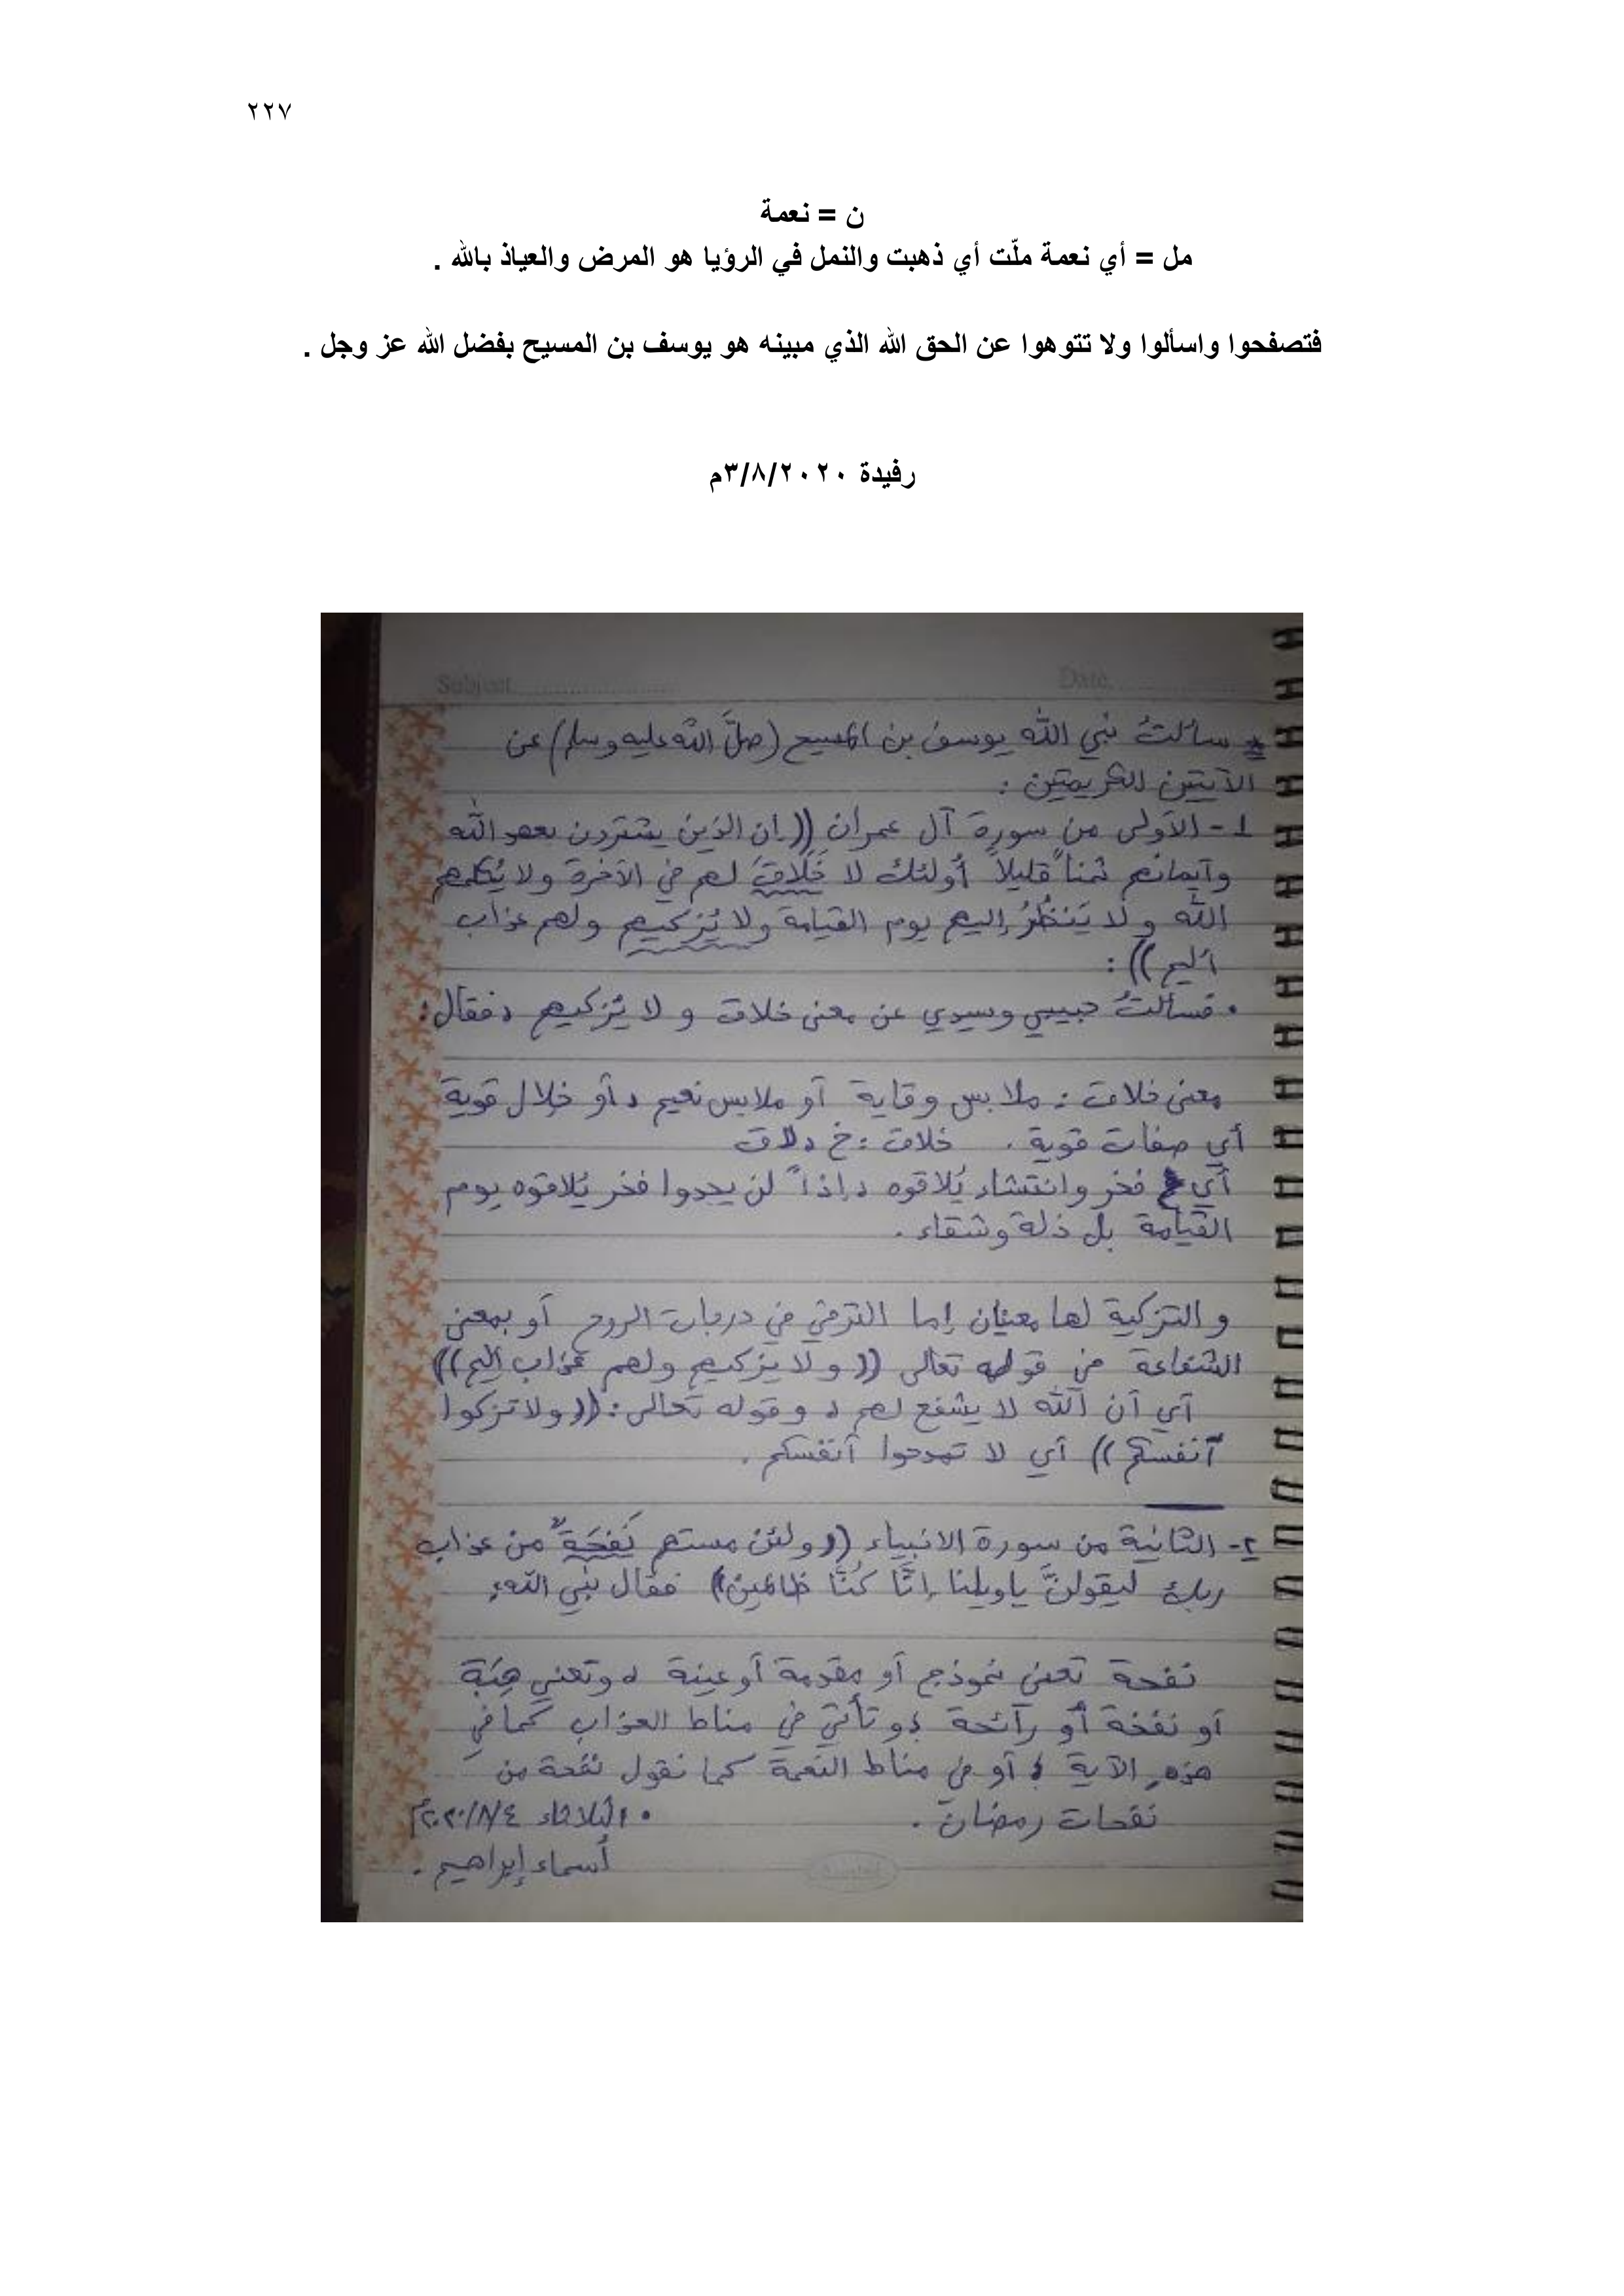 ٢٢٧
ن = نعمة
مل = أي نعمة ملّت أي ذهبت والنمل في الرؤيا هو المرض والعياذ بالله .
فتصفحوا واسألوا ولا تتوهوا عن الحق الله الذي مبينه هو يوسف بن المسيح بفضل الله عز وجل .
رفيدة ٣/٨/٢٠٢٠م
Subject Date
* سألتُ نبي الله يوسف بن المسيح (صلَّ الله عليه وسلم) عن
الآيتين الكريمتين :
١- الأولى من سورة آل عمران ((إن الذين يشترون بعهد الله
وأيمانهم ثمناً قليلاً أولئك لا خَلَاقَ لهم في الآخرة ولا يُكلمهم
الله ولا يَنظُرُ إليهم يوم القيامة ولا يُزكيهم ولهم عذاب
أليم )) :
• فسألتُ حبيبي وسيدي عن معنى خلاق و لا يُزكيهم ، فقال :
معنى خلاق : ملابس وقاية أو ملابس نعيم ، أو خلال قوية
أي صفات قوية . خلاق : خ ، لاق
أي فخر وانتشاء يُلاقوه ، إذاً لن يجدوا فخر يُلاقوه يوم
القيامة بل ذلة وشقاء .
و التزكية لها معنيان إما الترقي في درجات الروح أو بمعنى
الشفاعة من قوله تعالى ((ولا يزكيهم ولهم عذاب أليم))
أي أن الله لا يشفع لهم ، وقوله تعالى : ((ولا تزكوا
أنفسكم )) أي لا تمدحوا أنفسكم .
٢- الثانية من سورة الانبياء ((ولئن مستهم نَفحَةٌ من عذاب
ربك ليقولنَّ ياويلنا إنَّا كُنَّا ظالمين)) فقال نبي الله :
نفحة تعني نموذج أو مقدمة أو عينة ، وتعني هِبَة
أو نفخة أو رائحة ، و تأتي في مناط العذاب كما في
هذه الآية ، أو في مناط النعمة كما نقول نفحة من
نفحات رمضان .
• الثلاثاء ٢٠٢٠/٨/٤م
أسماء إبراهيم .